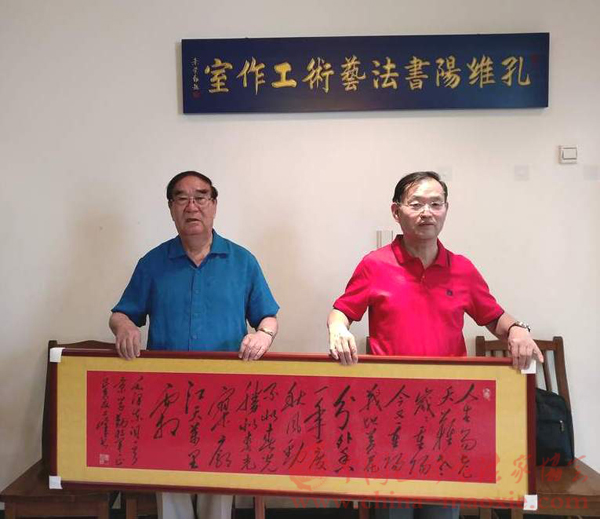 孔維陽書法藝術工作室
人生易老
天難老
歲歲重陽
今又重陽
戰地黃花
分外香
一年一度
秋風勁
不似春光
勝似春光
寥廓
江天萬里
霜